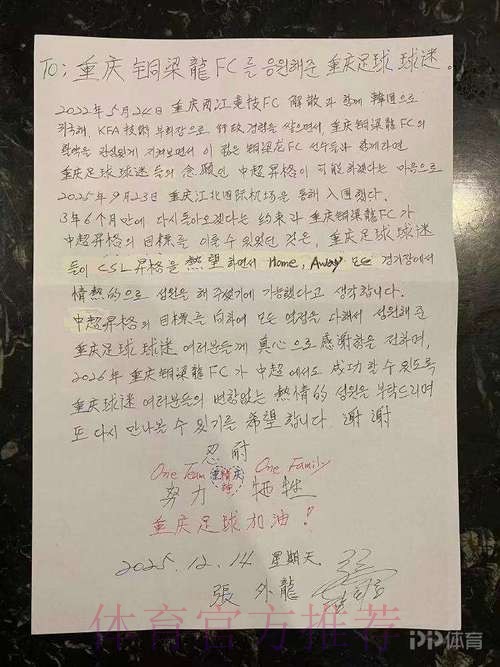 To; 重庆 铜梁龍FC를 응원해준 重庆足球 球迷。
2022年5月24日 重庆两江竞技FC 解散과 함께 韓国으로
귀국해, KFA 技術 부회장으로 行政 경험을 쌓으면서, 重庆铜梁龍FC의
활약을 관심있게 지켜보면서 이 팀은 铜梁龙FC 선수들과 함께라면
重庆足球球迷들의 念願인 中超昇格이 可能하겠다는 마음으로
2025年9月23日 重庆江北国际机场을 통해 入国했다.
3年6个月만에 다시 돌아오겠다는 約束과 重庆铜梁龍FC가
中超昇格의 目標를 이룰 수 있었던 것은, 重庆足球球迷
들이 CSL昇格을 熱望하면서 Home, Away 모든 경기장에서
情熱的으로 성원을 해 주셨기에 가능했다고 생각합니다.
中超昇格의 目標를 向하여 모든 역경을 다해서 성원해준
重庆足球球迷 여러분들게 真心으로 感谢함을 전하며,
2026年 重庆铜梁龍FC가 中超에서도 成功할 수 있도록
重庆球迷 여러분들의 변함없는 熱情的 성원을 부탁드리며
또 다시 만나볼 수 있기를 希望합니다. 谢谢
忍耐
One Team 重庆 One Family
努力 牺牲
重庆足球加油!
2025.12.14 星期天
張外龍
体育官方推荐
PP体育